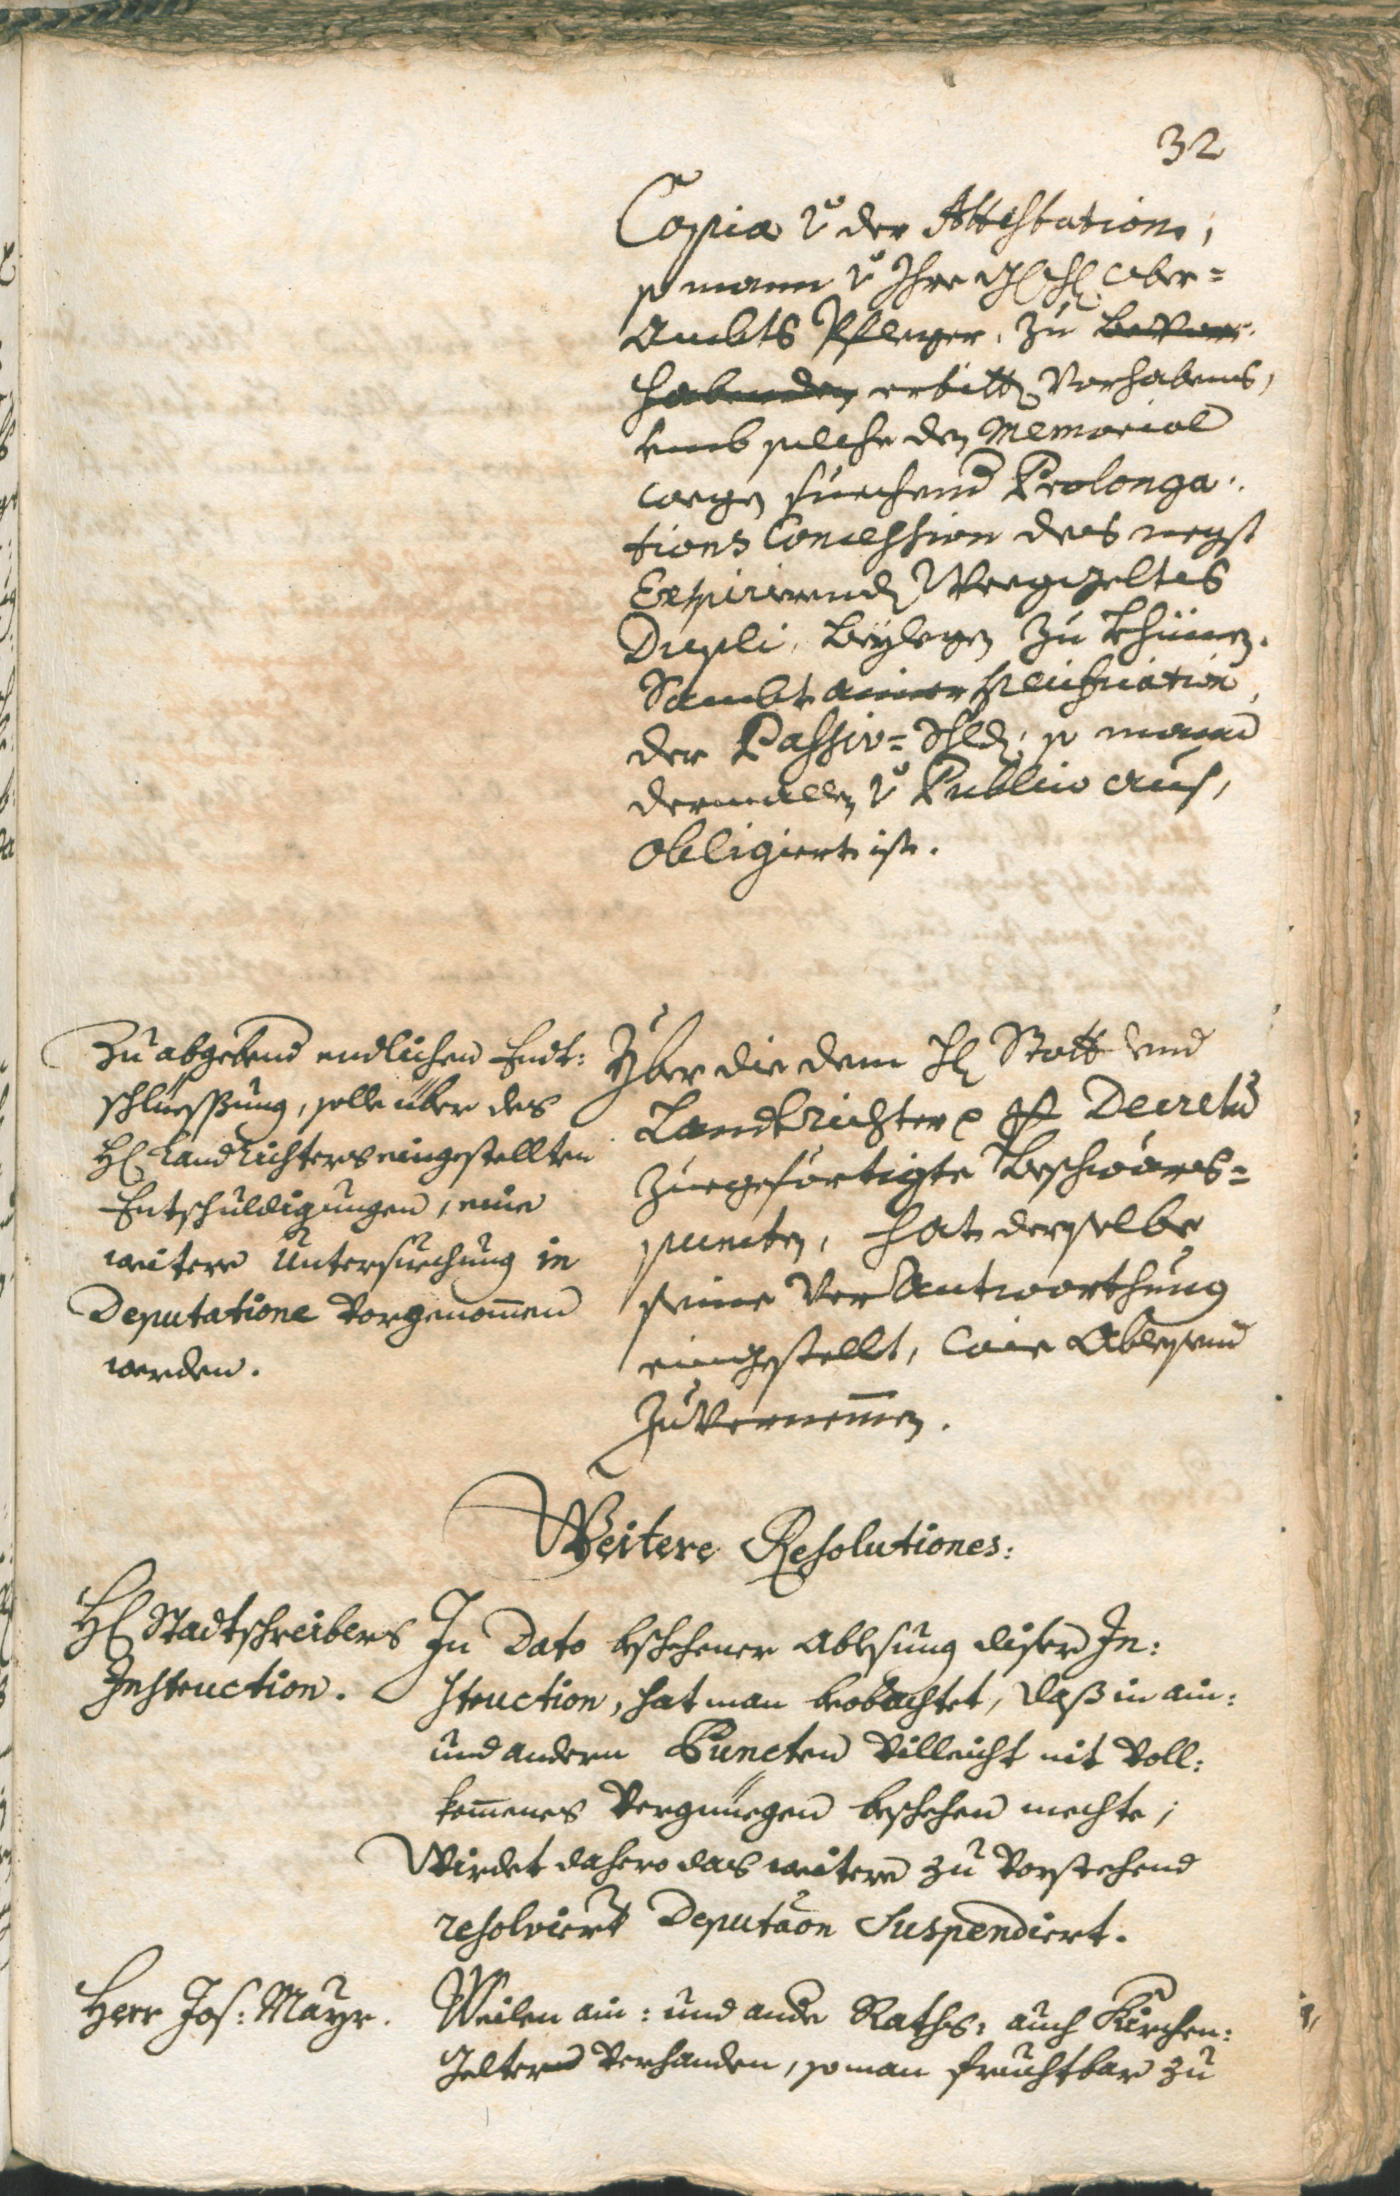 32
Copia v. der Attestation,
so mann v. Ihre Ober=
Ambts Pfleger, zu bevor
habenden erbitt Vorhabens,
umb solche den Memorial
wegen suechend Prolonga:
tions Concession des negst
Expirirenden Weeggeltes
Dupli, beylegen zu khünen.
Sambt ainer Specification
der Passiv=Schulden, so mann
dermallen v. Publico auß,
obligiert ist.
Zu abgebend endlichen Endt:
schluessung, solle über des
H. Landrichters eingestellten
Entschuldigungen, eine
weitere Untersuechung in
Deputatione vorgenommen
werden.
Yber die dem H. Statt und
Landtrichter p Decretum
zuegefertigte Beschwärs=
puncten, hat derselbe
seine Verantworthung
eingestellt, wie Ablesend
zu vernemmen.
Weitere Resolutiones:
H. Stadtschreibers
Instruction.
In Dato beschehener Ablesung diser In:
struction, hat man beobachtet, daß in ain:
und andern Puncten villeicht nit voll:
kommenes Vergnüegen beschehen mechte;
Wirdet dahero das weitere zu vorstehend
resolviert Deputaon Suspendiert.
Herr Jos: Mayr.
Weilen ain: und ander Raths, auch Kirchen:
Gelter verhanden, so man fruchtbar zu